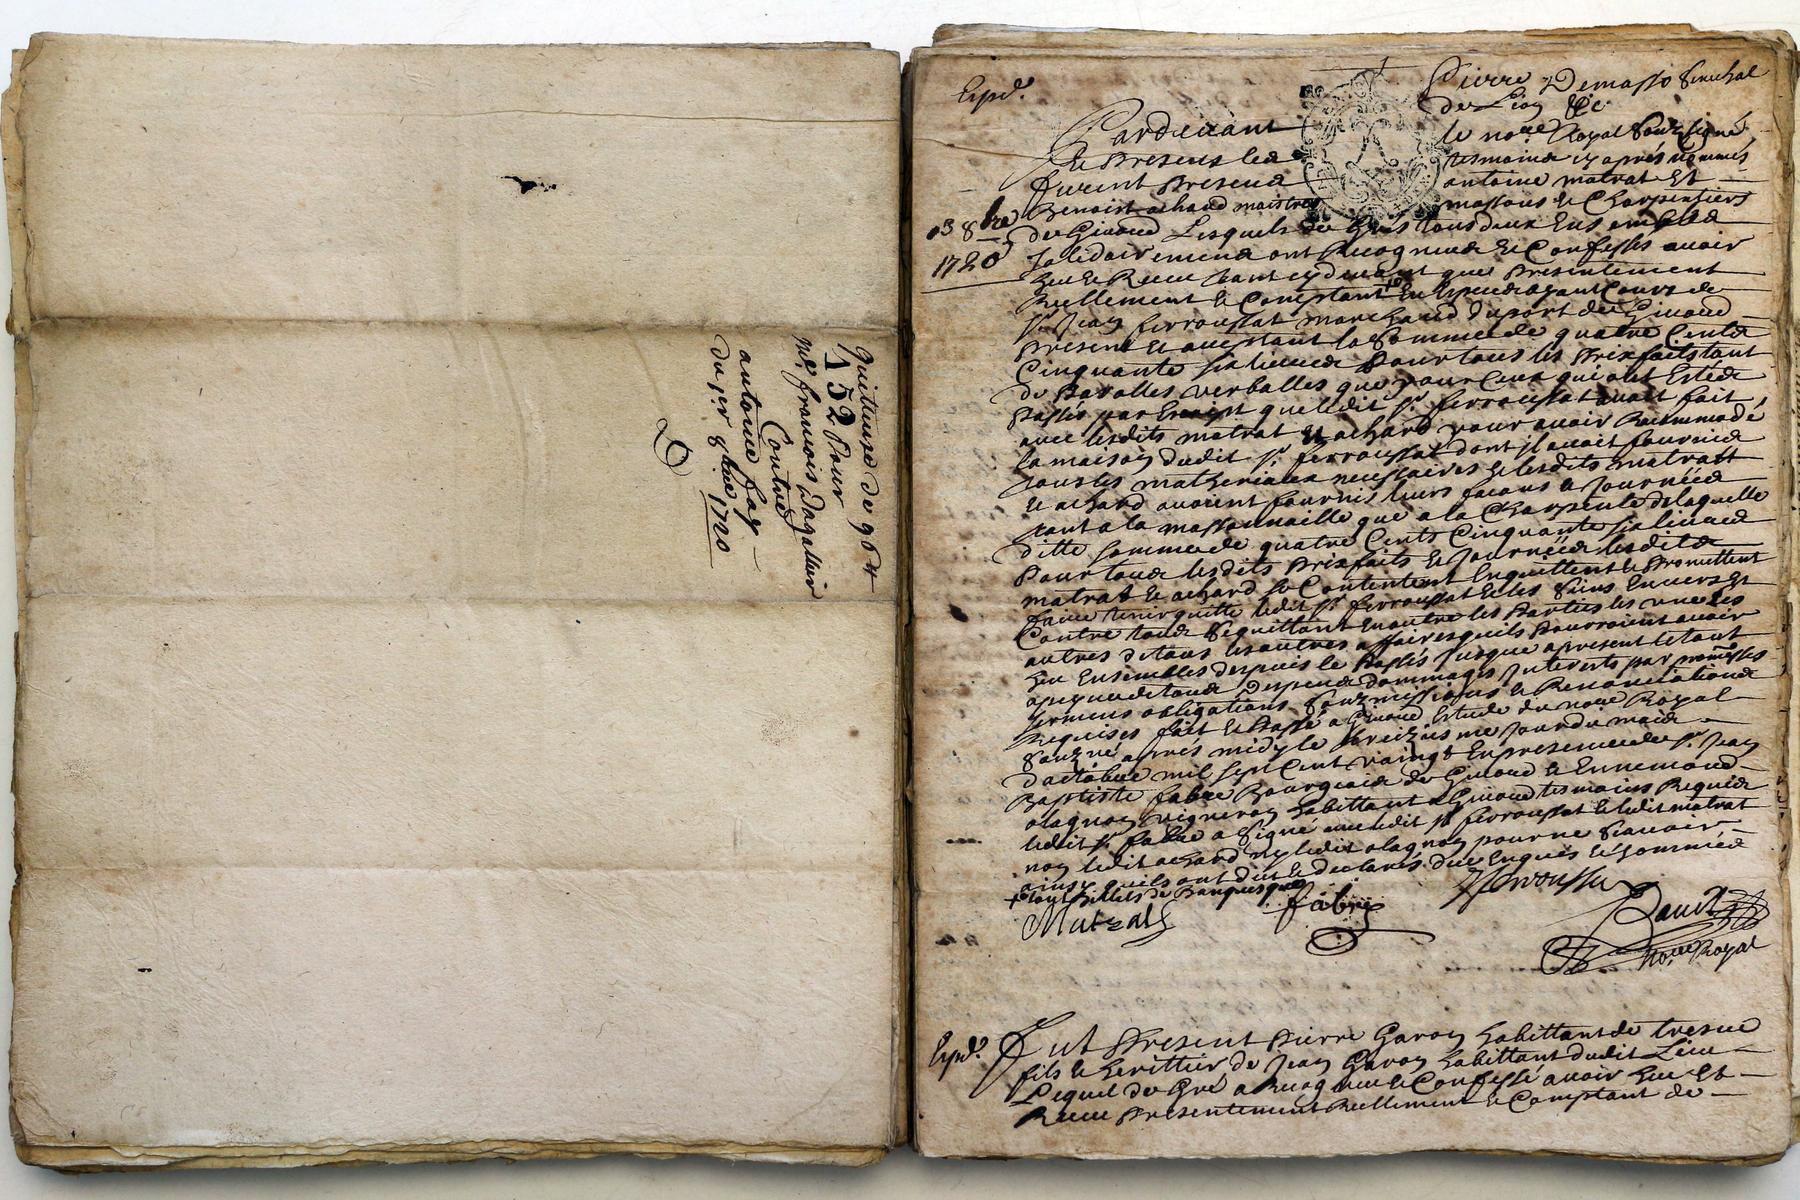 Quittance de 96#
152 pour
Mr françois Dagallier
Contre
antoine fay
du per 8bre 1720
Expd.
Pierre Demasso Senechal
de Lion &c
Pardevant le nore Royal Souzsigné
Et Presens les tesmoins cy aprés nommés
furent Presens antoine matrat Et
Benoist achard maistres massons & Charpentiers
13 8bre
1720
de Givord Lesquels de Grés tous deux Ensemble
Solidairement ont Recogneus Et Confessés avoir
Heu & Receu tant cydevant que Presentement
Reellement & Comptant + En Especes ayant Cours de
sr. Jean ferroussat marchand du port de Givord
Present Et acceptant la Somme de quatre Cents
Cinquante six livres Pour tous les Prixfaits tant
de Parolles verballes que pour Ceux qui ont Estés
Passés par Escript que ledit sr. ferroussat avoit fait
avec lesdits matrat Et achard pour avoir Racommodé
la maison dudit sr. ferroussat dont il avoit fournis
tous les matheriaux necessaires & lesdits matrat
& achard avoient fournis leurs facons & Journées
tant a la massonnaille que a la Charpente de laquelle
ditte Somme de quatre Cents Cinquante six livres
Pour tous lesdits Prixfaits & Journées lesdits
matrat & achard se Contentent Enquittent & Promettent
faire tenir quitte ledit sr. ferroussat Et les Siens Envers Et
Contre tous Se quittant En outre les Parties les unes les
autres de tous les autres affaires qu'ils Pourroient avoir
heu Ensembles despuis le Passés jusque a present le tout
a peyne de tous despens dommages Interests par promesses
sermens obligations Souzmissions & Renonciations
Requises fait & Passé a Givord Estude du nore Royal
Souzné aprés midy le treiziesme Jour du mois
d'actobre mil sept Cent vaingt En presence de sr. Jean
Baptiste fabre Bourgeois de Givord & Ennemond
olagnon vigneron habittant a Givord tesmoins Requis
ledit sr. fabre a Signé avec ledit sr. ferroussat & ledit matrat
non ledit achard ny ledit olagnon pour ne Scavoir
ainsy qu'ils ont dit & declarés de ce Enquis & Sommés
+ tout Billets de Banque que
Matrat
fabre
J ferroussat
nore Royal
Expd.
Fut Present Pierre Garon habittant de tresve
fils & herittier de Jean Garon habittant dudit Lieu
Lequel de Gré a Recogneu & Confessé avoir heu Et
Receu Presentement Reellement & Comptant de